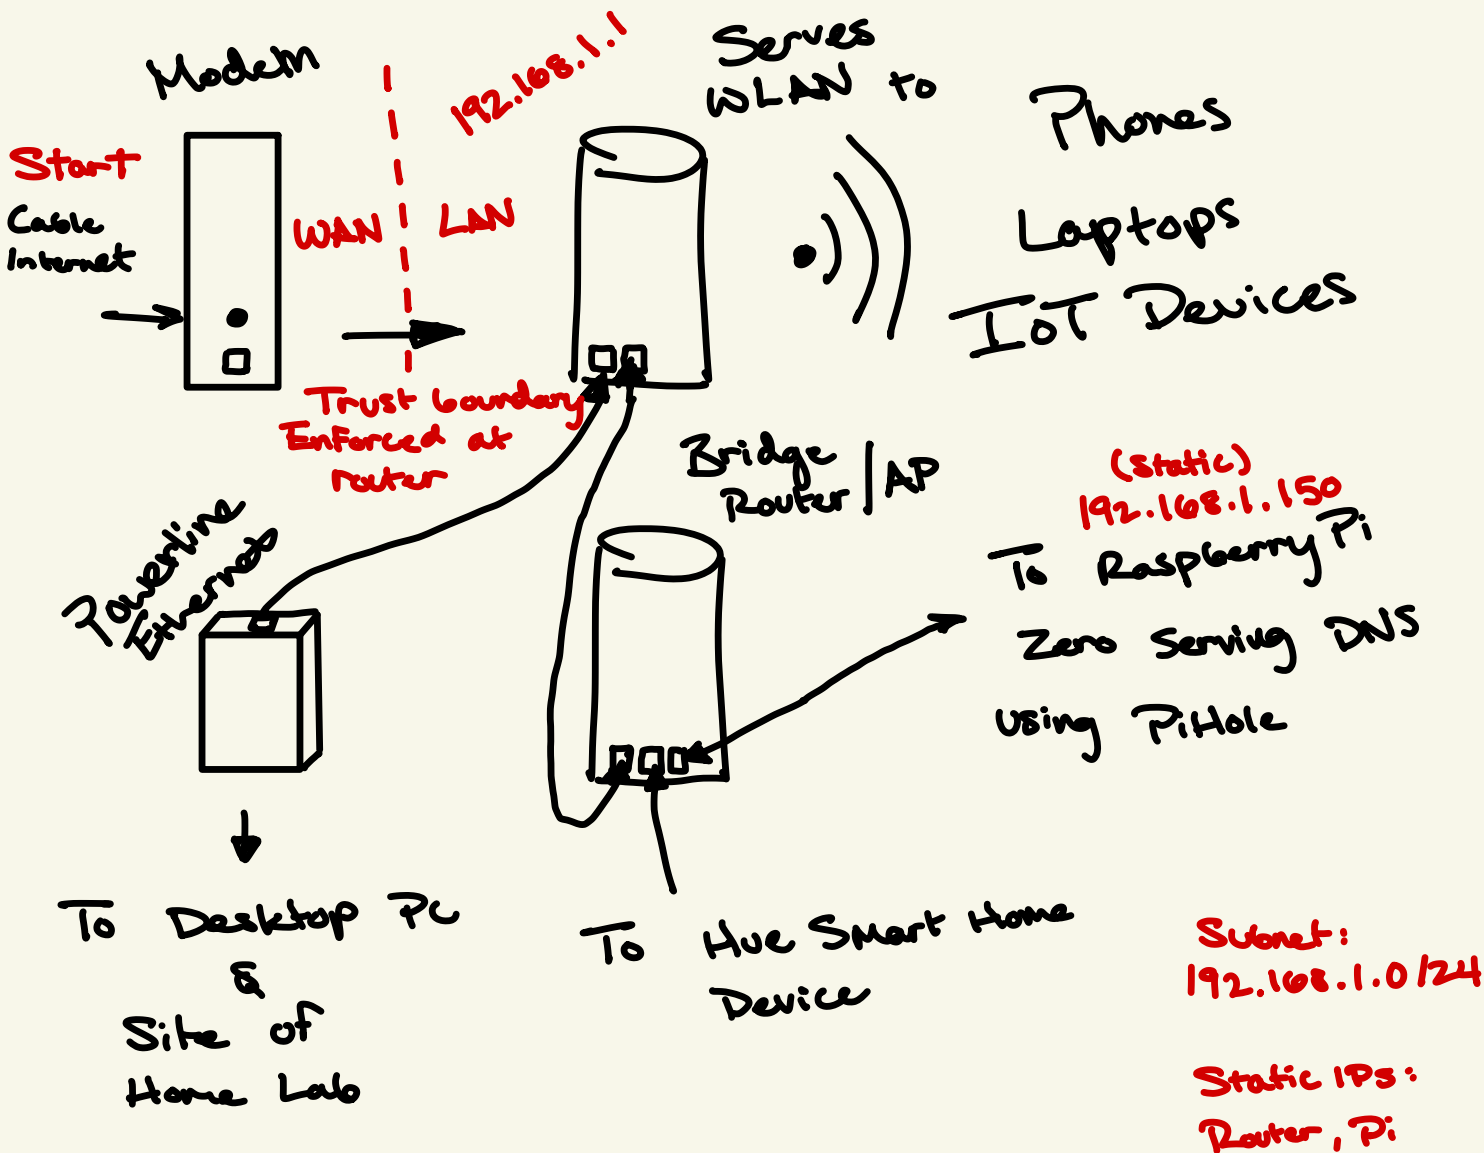 Modem
192.168.1.1
Serves
WLAN to
Phones
Laptops
IoT Devices
Start
Cable
Internet
WAN
LAN
Trust boundary
Enforced at
router
Bridge
Router/AP
(static)
192.168.1.150
To Raspberry Pi
Zero Serving DNS
using PiHole
Powerline
Ethernet
To Desktop PC
&
Site of
Home Lab
To Hue Smart Home
Device
Subnet:
192.168.1.0/24
Static IPs:
Router, Pi